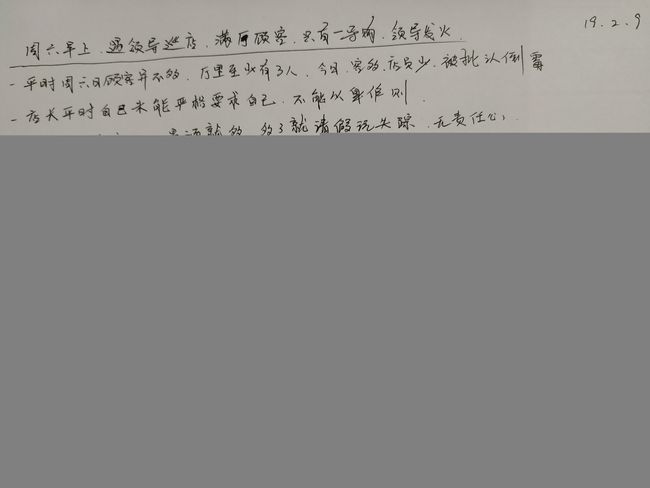 19.2.9
周六早上、遇领导巡店、满厅顾客、只有一导购、领导发火.
- 平时周六日顾客并不多、厅里至少有3人、今日、客多、店员少、被批认倒霉
- 店长平时自己未能严格要求自己、不能以身作则.
就请假玩失踪、无责任心,